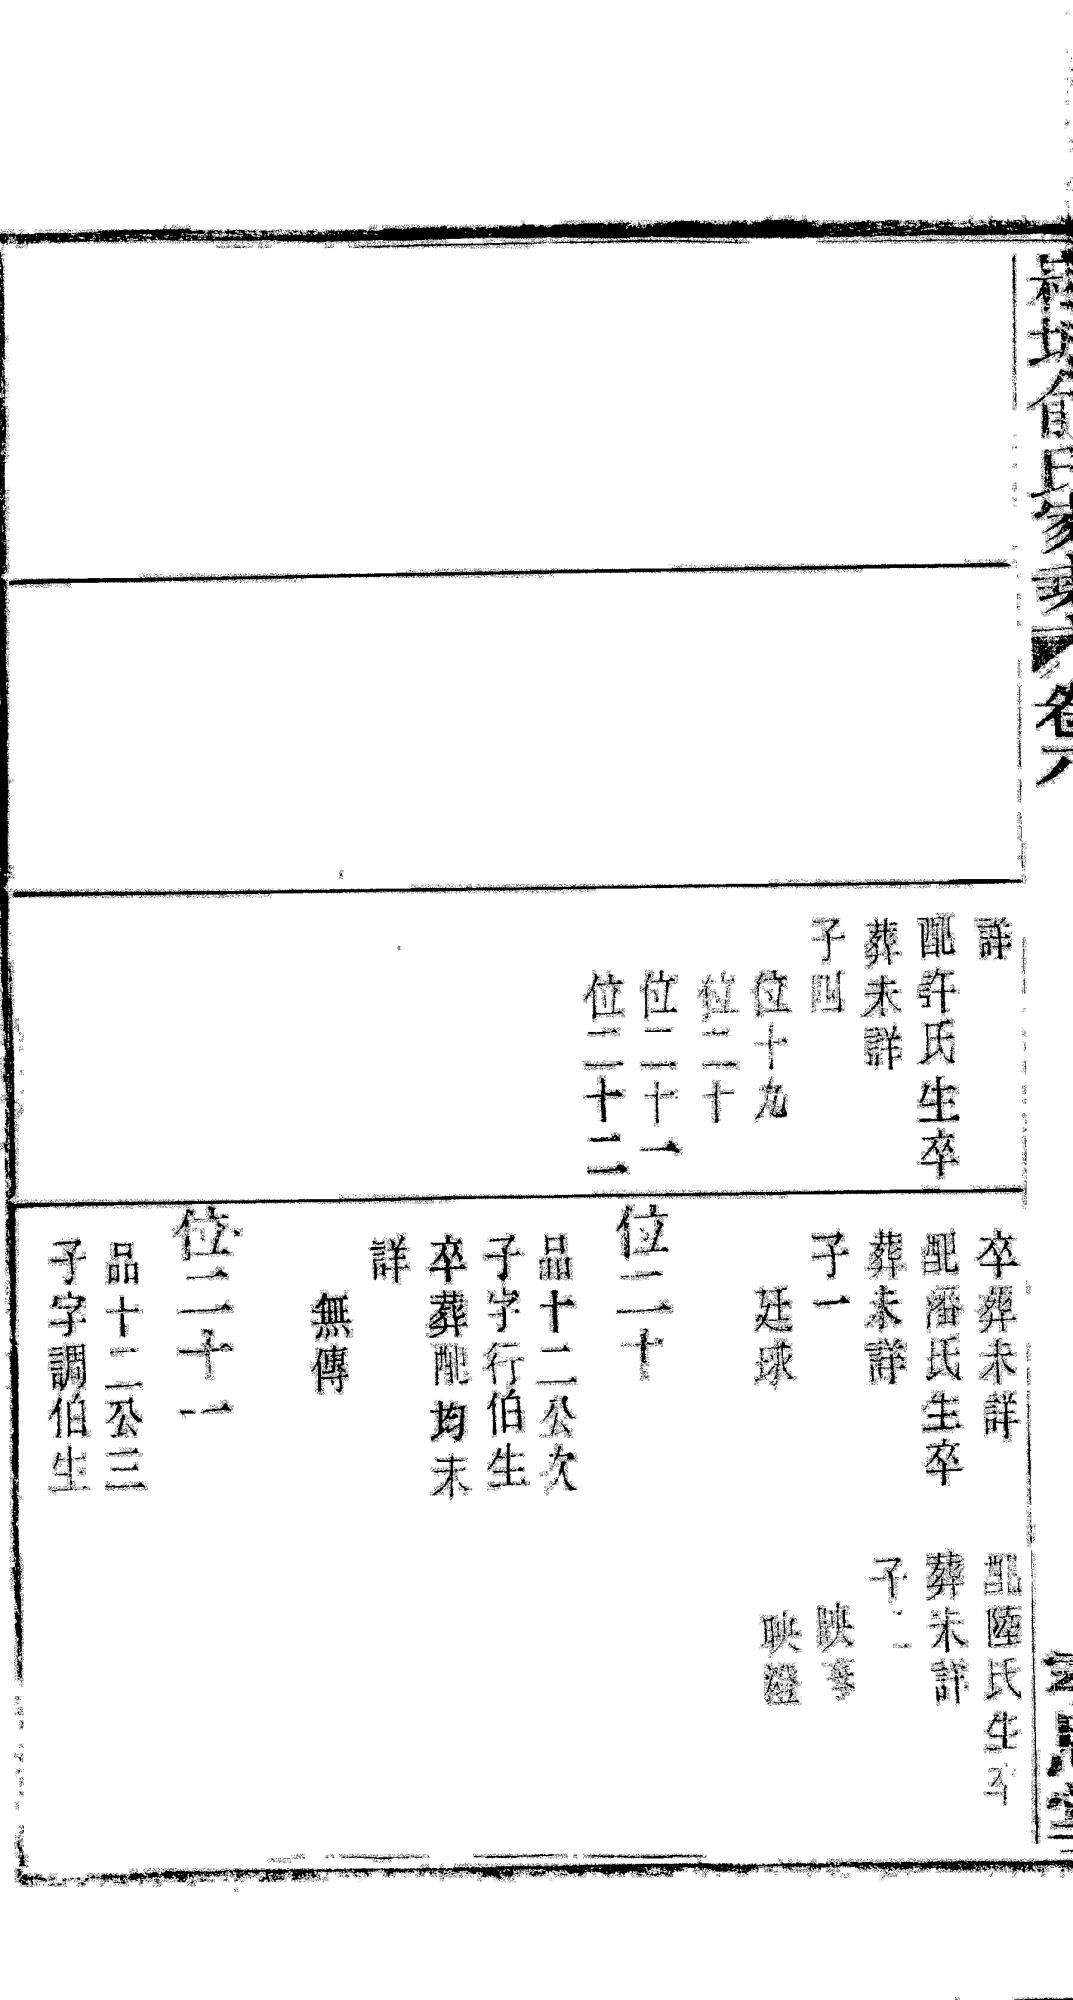 氏家乘 卷六
詳
配許氏生卒
葬未詳
子四
位十九
位二十
位二十一
位二十二
卒葬未詳
配潘氏生卒
葬未詳
子一
廷球
位二十
品十二公次
子字行伯生
卒葬配均未
詳
無傳
位二十一
品十二公三
子字調伯生
配陸氏生卒
葬未詳
子二
映
映澄
思堂